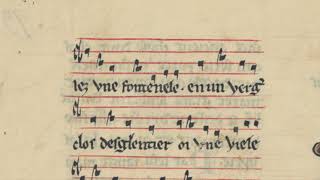 lez vne fontenele · en un verg
clos desglentier oi vne viele